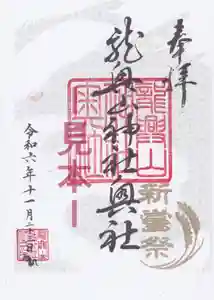 奉拝
龍興山神社奥社
龍興山
見本
新嘗祭
令和六年十一月二十三日